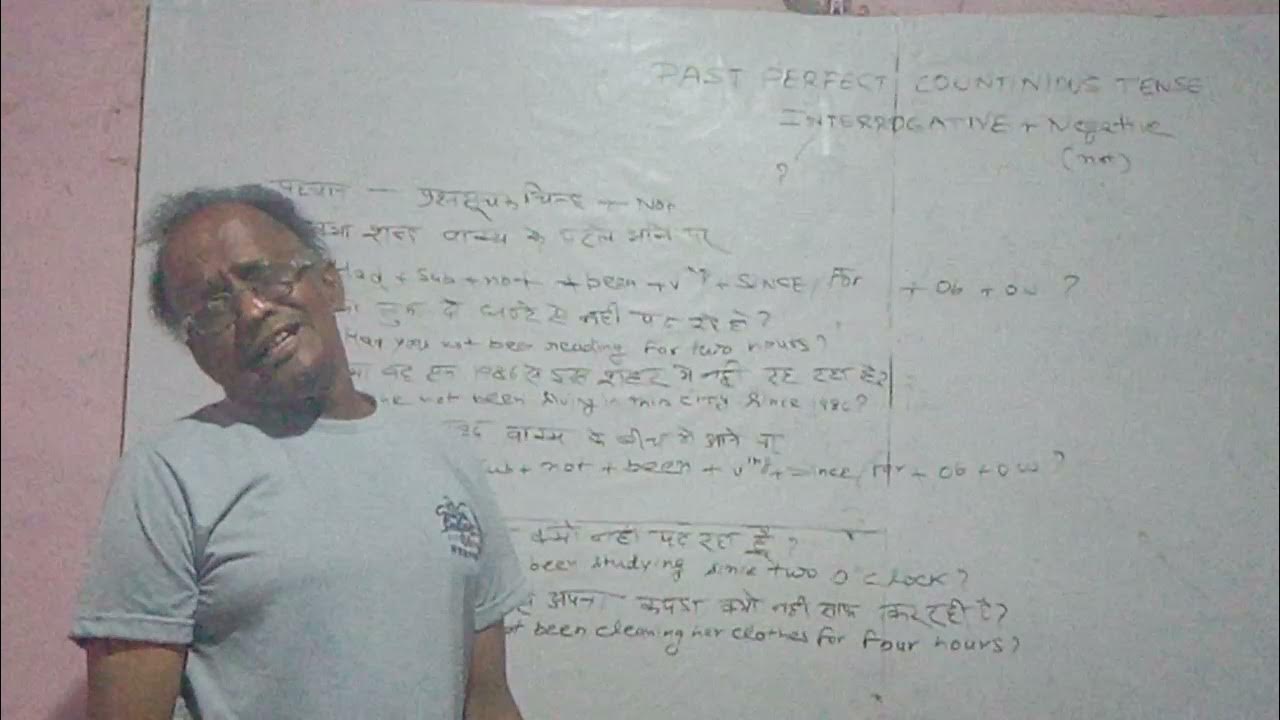 PAST PERFECT COUNTINIOUS TENSE
INTERROGATIVE + Negative
(not)
?
पहचान — प्रश्नसूचक चिन्ह + Not
शब्द वाक्य के पहले आने पर
Had + Sub + not + been + v ing + SINCE/For + Ob + OW ?
तुम दो घण्टे से नहीं पढ़ रहे हो?
you not been reading For two hours?
वह सन 1986 से इस शहर में नहीं रह रहा है?
he not been living in this city since 1986?
वाक्य के बीच में आने पर
Sub + not + been + v ing + since/for + Ob + OW ?
क्यों नहीं पढ़ रहा है?
been studying since two O'clock?
अपना कपड़ा क्यों नहीं साफ कर रही है?
not been cleaning her clothes for four hours?